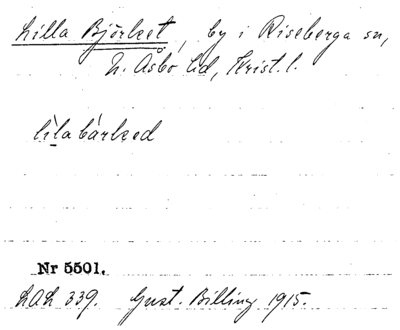 Lilla Björket, by i Riseberga sn,
N. Åsbo hd, Krist. l.
lìla bárked
Nr 5501.
LAL 339. Gust. Billing 1915.